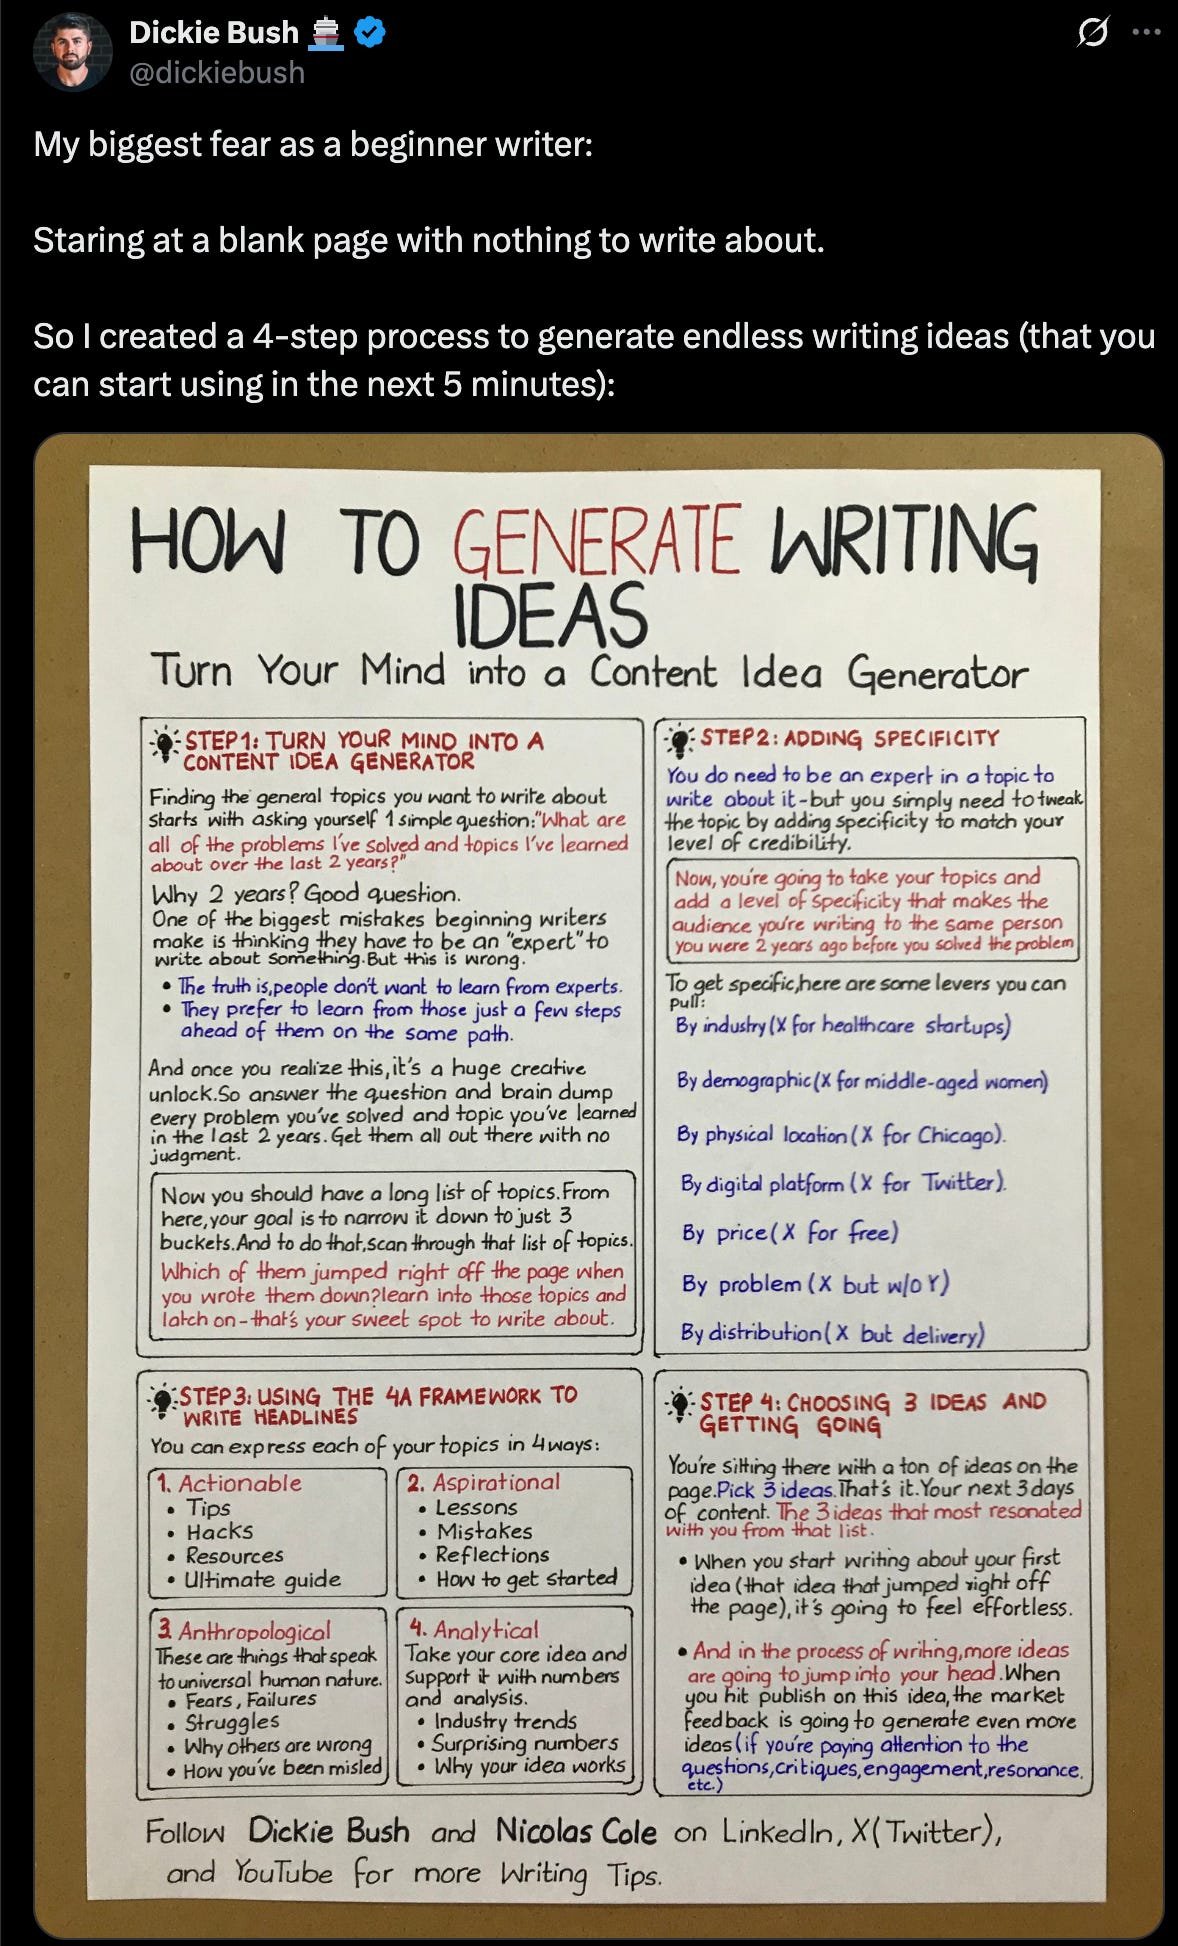 Dickie Bush 🚢
@dickiebush
My biggest fear as a beginner writer:
Staring at a blank page with nothing to write about.
So I created a 4-step process to generate endless writing ideas (that you
can start using in the next 5 minutes):
HOW TO GENERATE WRITING
IDEAS
Turn Your Mind into a Content Idea Generator
STEP1: TURN YOUR MIND INTO A
CONTENT IDEA GENERATOR
Finding the general topics you want to write about
starts with asking yourself 1 simple question:"What are
all of the problems I've solved and topics I've learned
about over the last 2 years?"
Why 2 years? Good question.
One of the biggest mistakes beginning writers
make is thinking they have to be an "expert" to
write about something.But this is wrong.
• The truth is,people don't want to learn from experts.
• They prefer to learn from those just a few steps
ahead of them on the same path.
And once you realize this,it's a huge creative
unlock.So answer the question and brain dump
every problem you've solved and topic you've learned
in the last 2 years.Get them all out there with no
judgment.
Now you should have a long list of topics.From
here,your goal is to narrow it down to just 3
buckets.And to do that,scan through that list of topics.
Which of them jumped right off the page when
you wrote them down?learn into those topics and
latch on-that's your sweet spot to write about.
STEP2: ADDING SPECIFICITY
You do need to be an expert in a topic to
write about it-but you simply need to tweak
the topic by adding specificity to match your
level of credibility.
Now, you're going to take your topics and
add a level of specificity that makes the
audience you're writing to the same person
you were 2 years ago before you solved the problem
To get specific,here are some levers you can
pull:
By industry(X for healthcare startups)
By demographic(X for middle-aged women)
By physical location(X for Chicago).
By digital platform (X for Twitter).
By price(X for free)
By problem (X but w/o Y)
By distribution(X but delivery)
STEP3: USING THE 4A FRAMEWORK TO
WRITE HEADLINES
You can express each of your topics in 4ways:
1. Actionable
• Tips
• Hacks
• Resources
• Ultimate guide
2. Aspirational
• Lessons
• Mistakes
• Reflections
• How to get started
3. Anthropological
These are things that speak
to universal human nature.
• Fears, Failures
• Struggles
• Why others are wrong
• How you've been misled
4. Analytical
Take your core idea and
support it with numbers
and analysis.
• Industry trends
• Surprising numbers
• Why your idea works
STEP 4: CHOOSING 3 IDEAS AND
GETTING GOING
You're sitting there with a ton of ideas on the
page.Pick 3 ideas.That's it.Your next 3 days
of content. The 3 ideas that most resonated
with you from that list.
• When you start writing about your first
idea (that idea that jumped right off
the page),it's going to feel effortless.
• And in the process of writing,more ideas
are going to jump into your head.When
you hit publish on this idea,the market
feedback is going to generate even more
ideas(if you're paying attention to the
questions,critiques,engagement,resonance,
etc.)
Follow Dickie Bush and Nicolas Cole on LinkedIn, X(Twitter),
and YouTube for more Writing Tips.